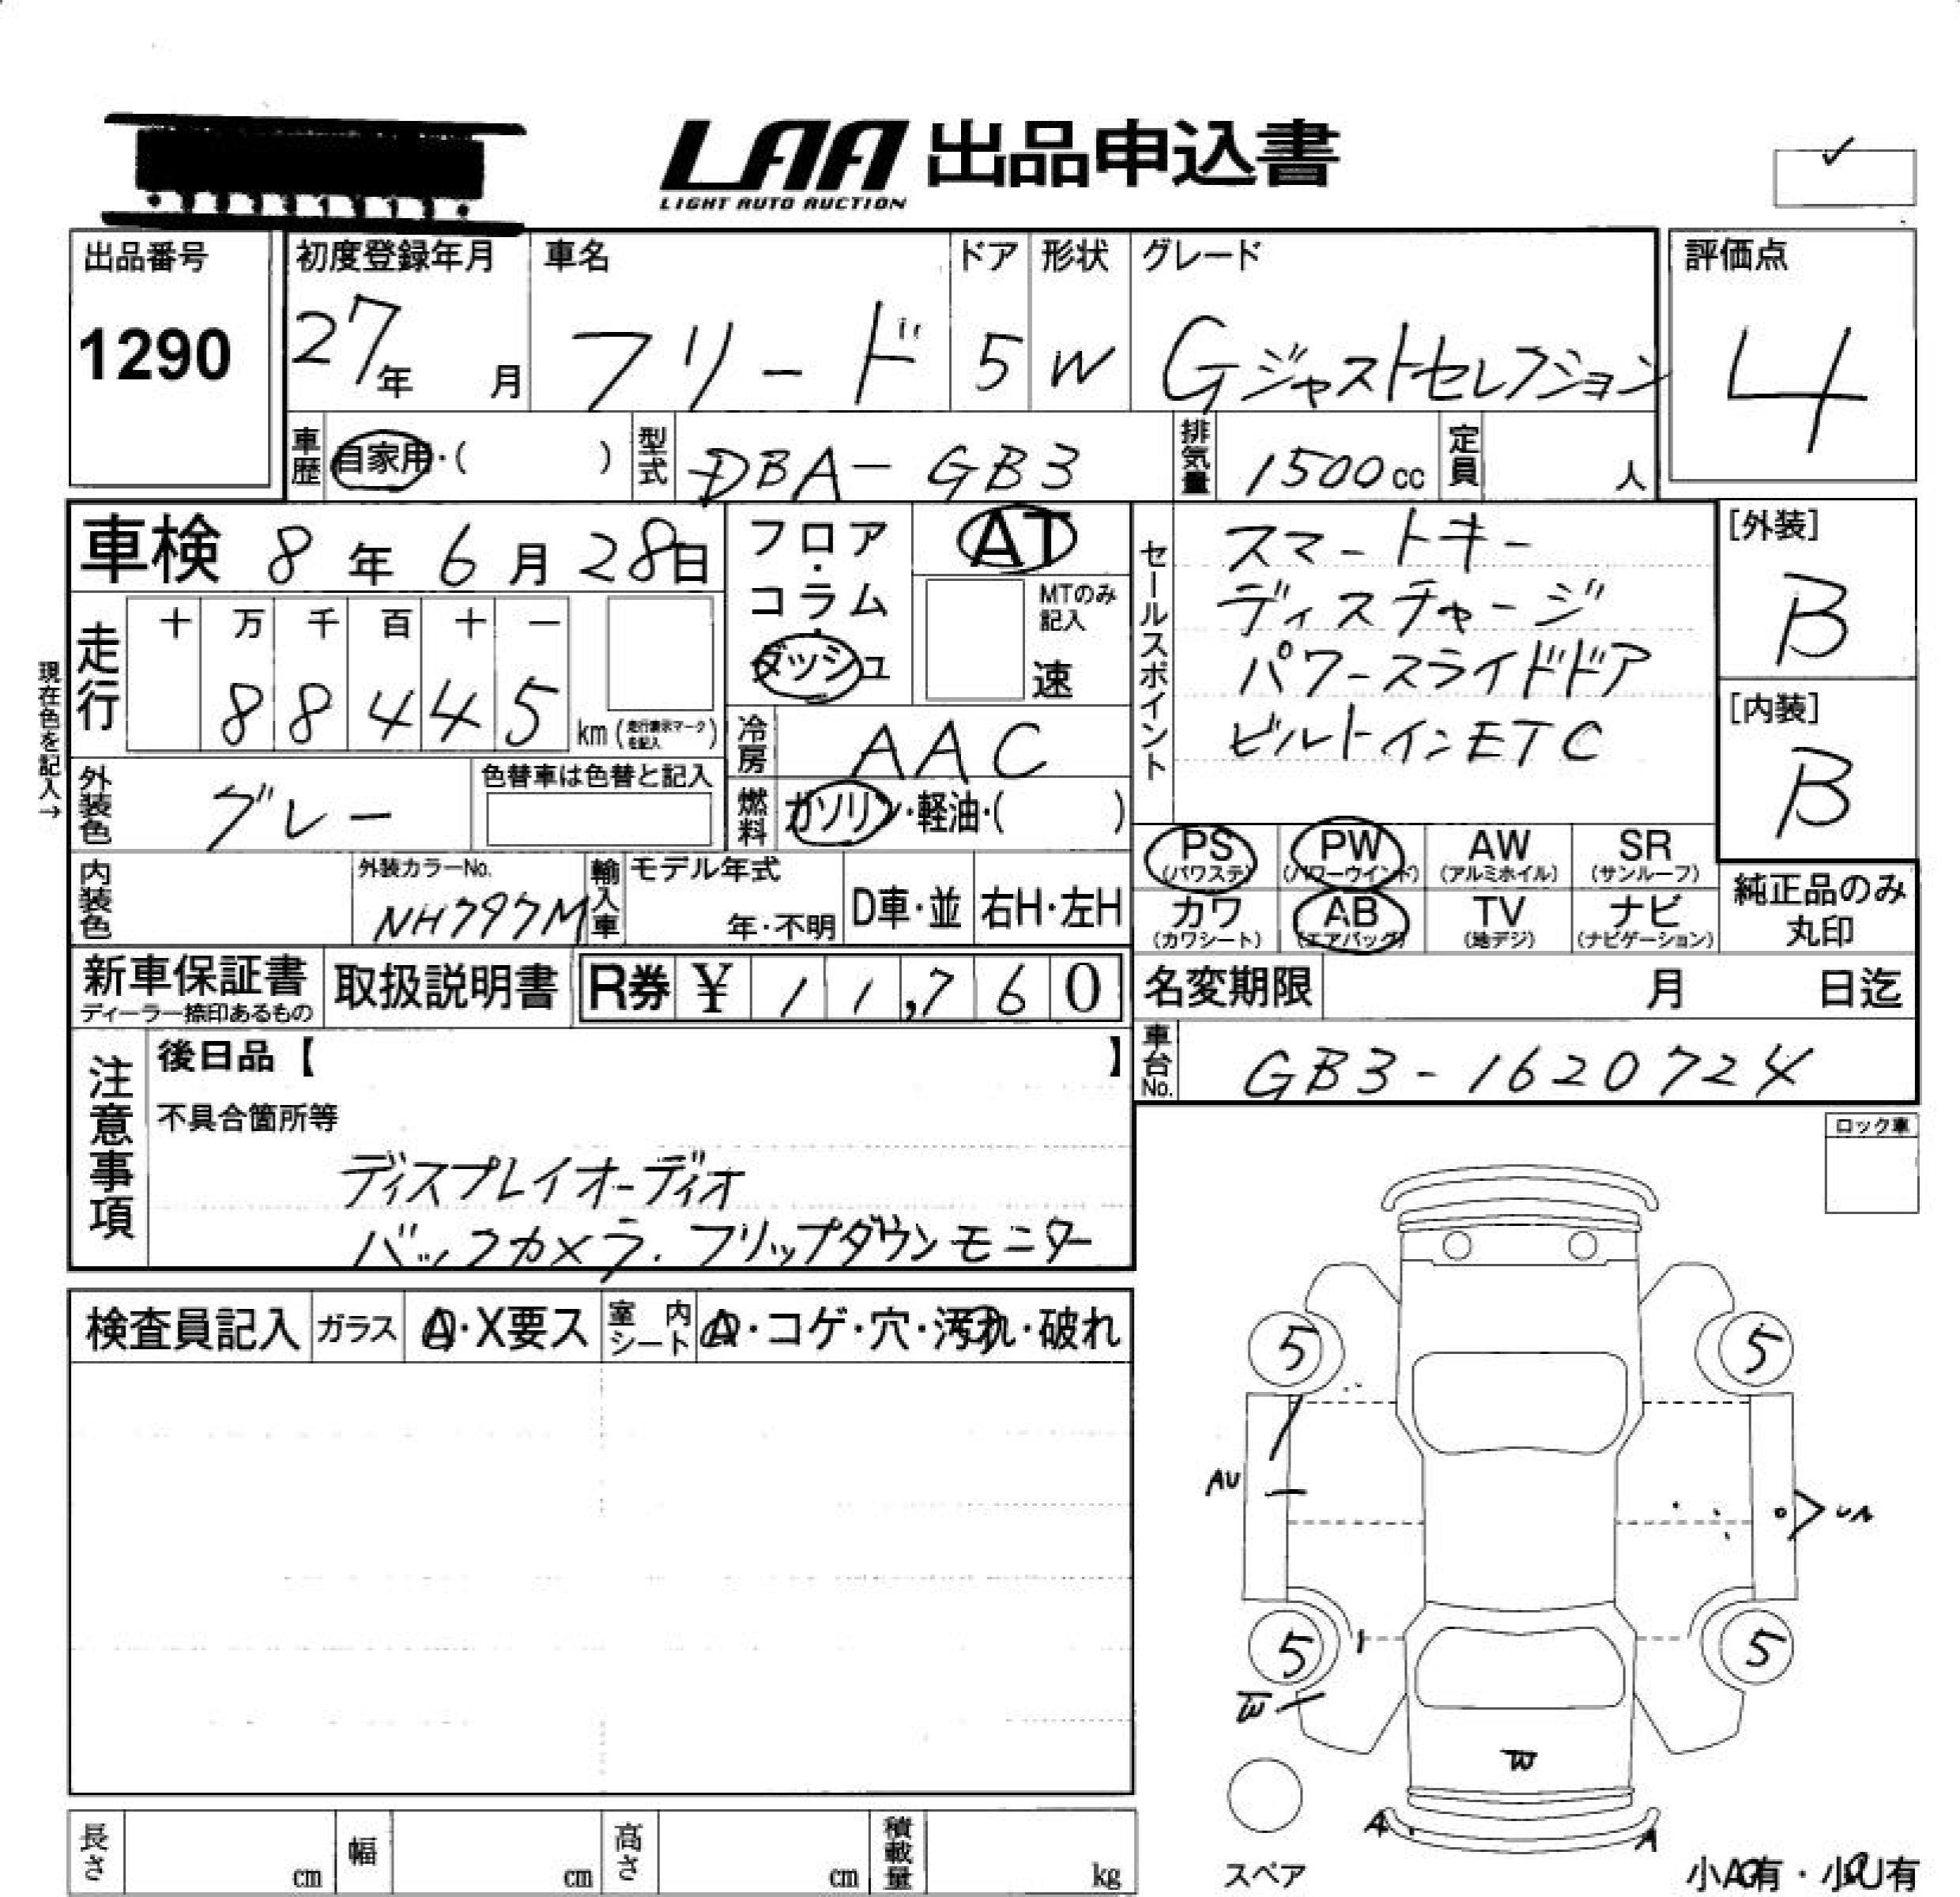 LAA 出品申込書
LIGHT AUTO AUCTION
出品番号 初度登録年月 車名 ドア 形状 グレード 評価点
1290 27年 月 フリード 5 W Gジャストセレクション 4
車歴 自家用・( ) 型式 DBA-GB3 排気量 1500cc 定員 人
車検 8年6月28日 フロア・コラム・ダッシュ AT セールスポイント スマートキー [外装]
MTのみ記入 ディスチャージ B
走行 十 万 千 百 十 一 速 パワースライドドア [内装]
88445 km (走行表示マークを記入) 冷房 AAC ビルトインETC B
現在色を記入→
外装色 グレー 色替車は色替と記入 燃料 ガソリン・軽油・( )
PS (パワステ) PW (パワーウインド) AW (アルミホイル) SR (サンルーフ)
内装色 外装カラーNo. NH797M 輸入車 モデル年式 年・不明 D車・並 右H・左H
カワ (カワシート) AB (エアバッグ) TV (地デジ) ナビ (ナビゲーション) 純正品のみ丸印
新車保証書 ディーラー捺印あるもの 取扱説明書 R券 ¥ 11,760 名変期限 月 日迄
注意事項 後日品【 】 車台No. GB3-1620724
不具合箇所等
ディスプレイオーディオ
バックカメラ. フリップダウンモニター
ロック車
検査員記入 ガラス A・X要ス 室内シート A・コゲ・穴・汚れ・破れ
5 5
AU
5 5
W
A A
長さ cm 幅 cm 高さ cm 積載量 kg スペア 小A有・小U有